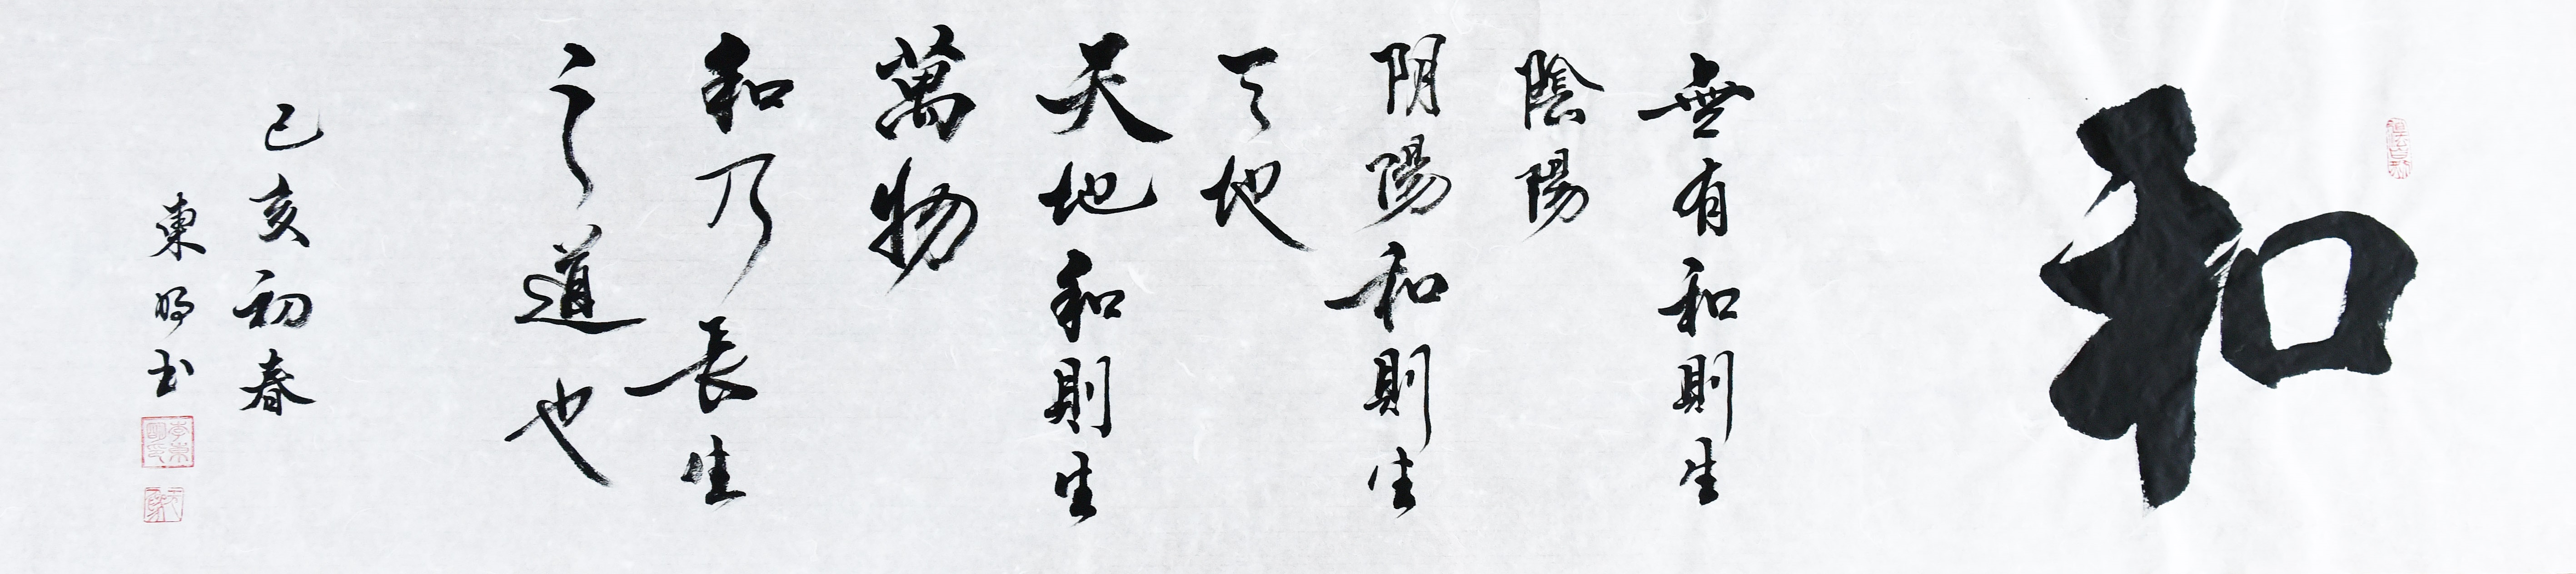 和
無有和則生
陰陽
阴陽和則生
天地
天地和則生
萬物
和乃長生
之道也
己亥初春
東明书